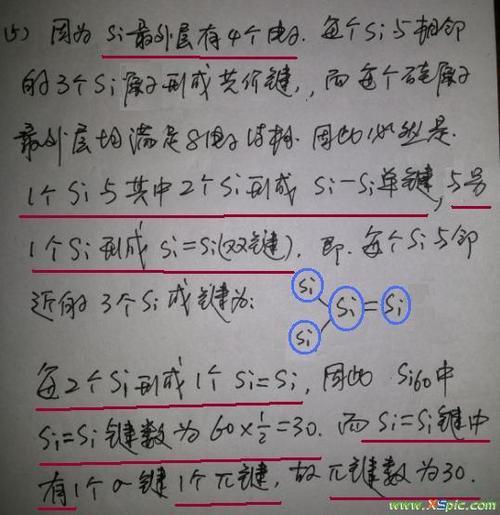 (5) 因为 Si最外层有4个电子. 每个Si与相邻
的3个Si原子形成共价键,, 而每个硅原子
最外层均满足8电子结构. 因此必然是
1个Si与其中2个Si形成 Si-Si单键, 与另
1个Si形成 Si=Si(双键). 即. 每个Si与邻
近的3个Si成键为:
Si
Si=Si
Si
每2个Si形成1个Si=Si, 因此 Si60中
Si=Si键数为60×1/2=30. 而Si=Si键中
有1个σ键1个π键, 故π键数为30.
www.XSpic.com